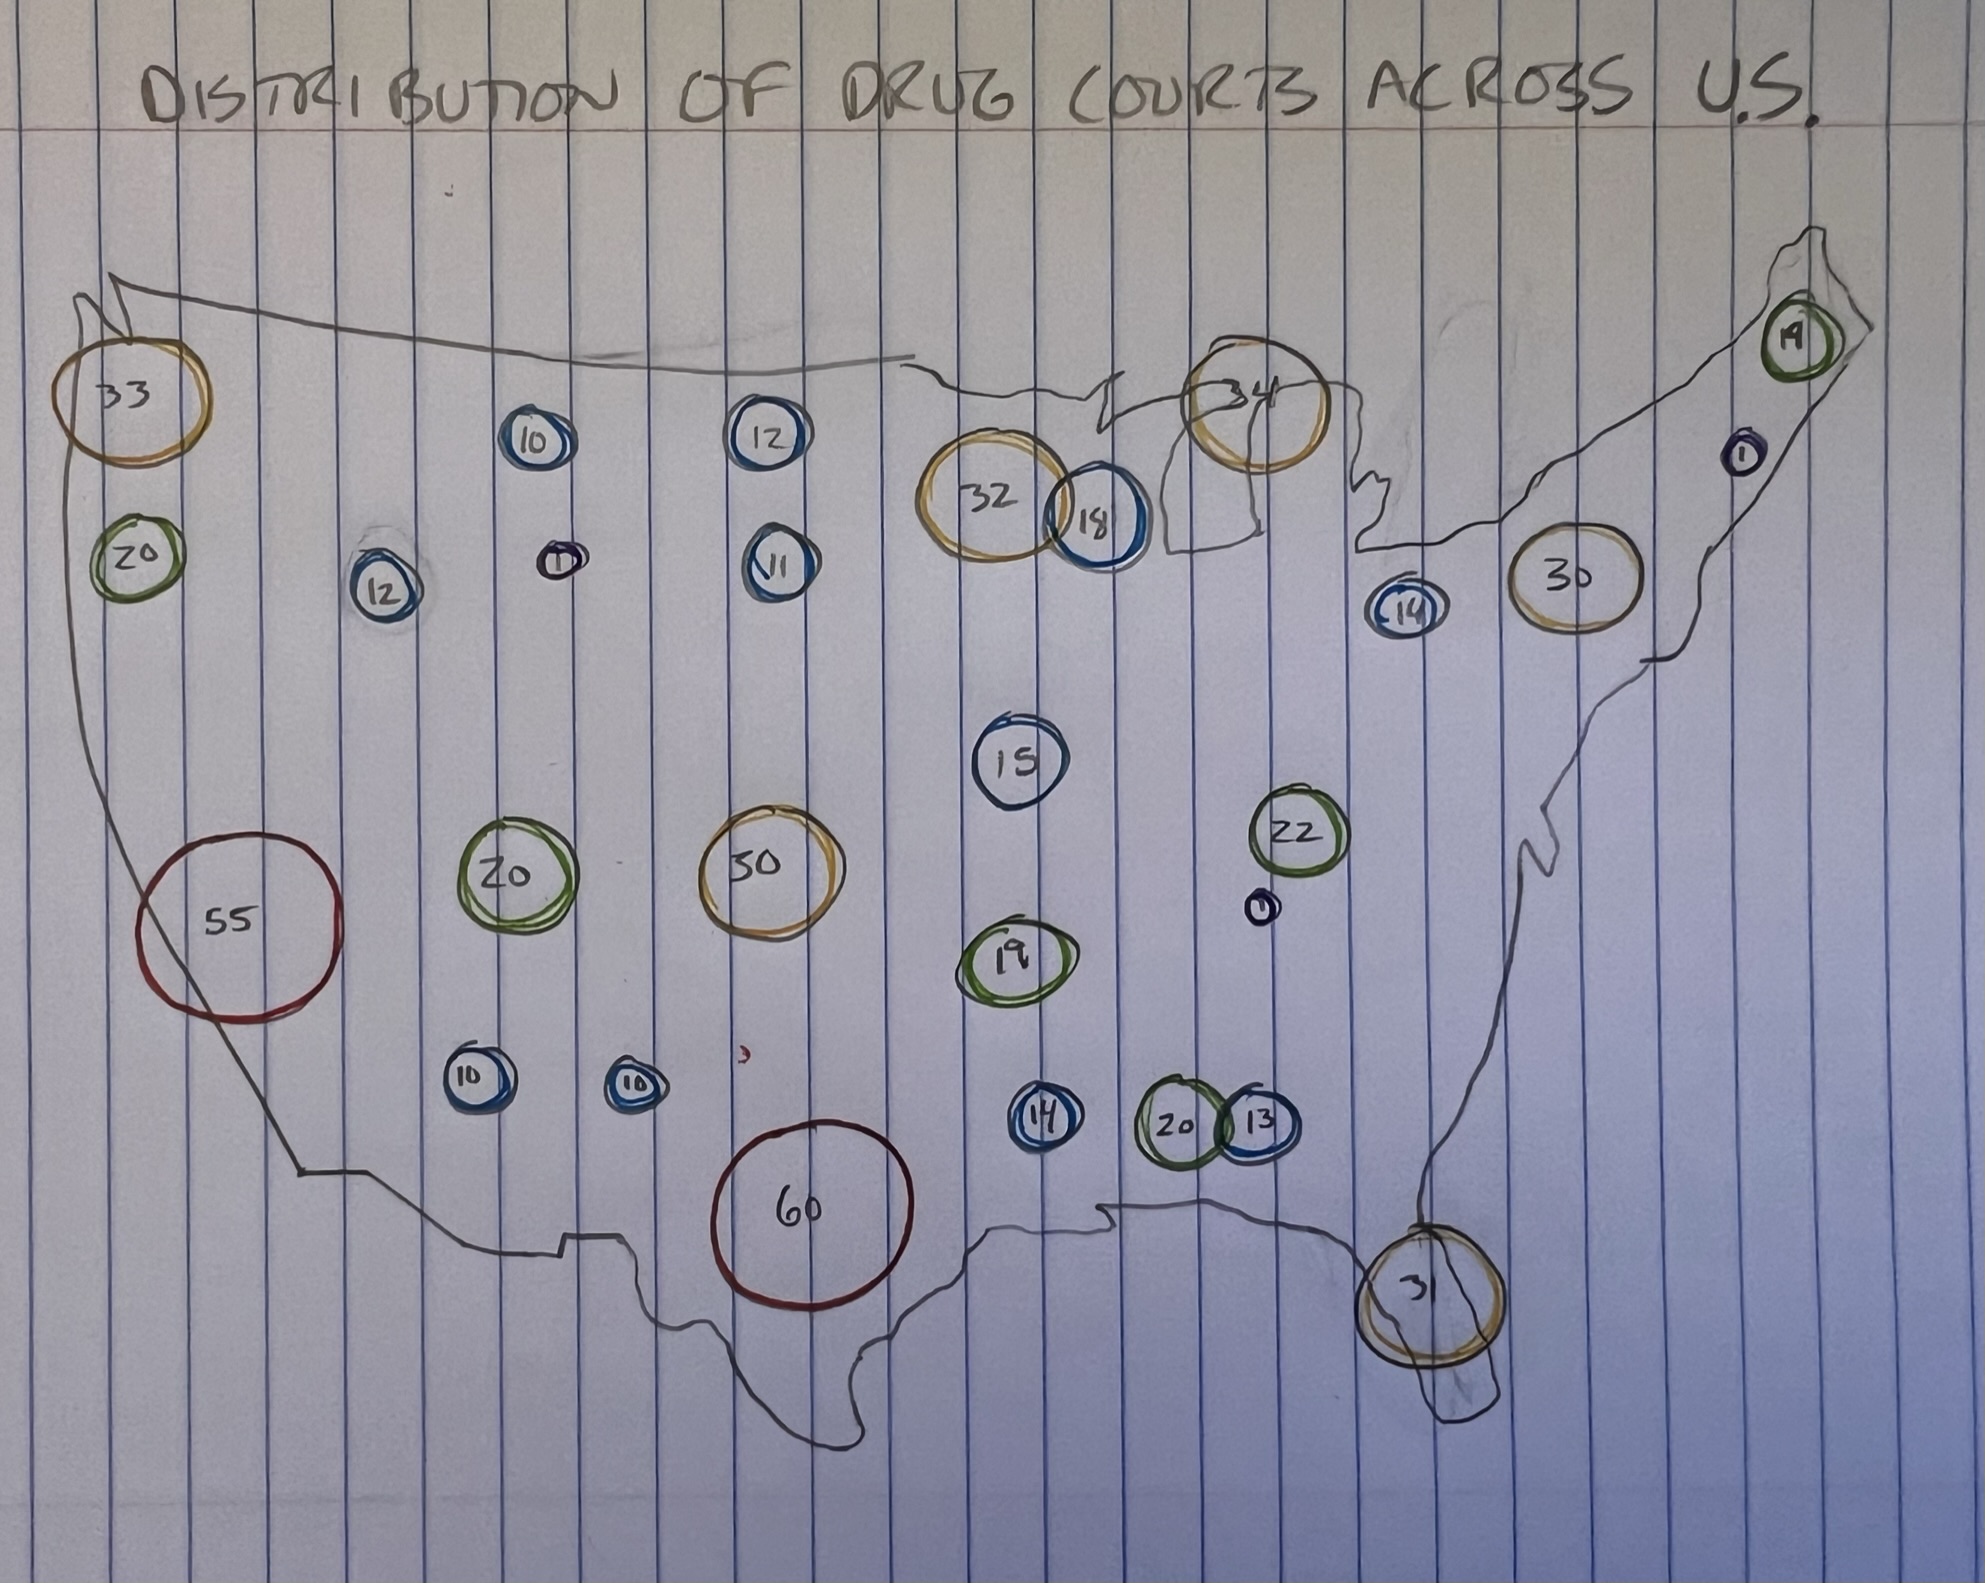 DISTRIBUTION OF DRUG COURTS ACROSS U.S.
19
33
34
10
12
1
32
18
20
1
11
12
30
14
15
22
20
30
55
1
19
10
10
14
20
13
60
31